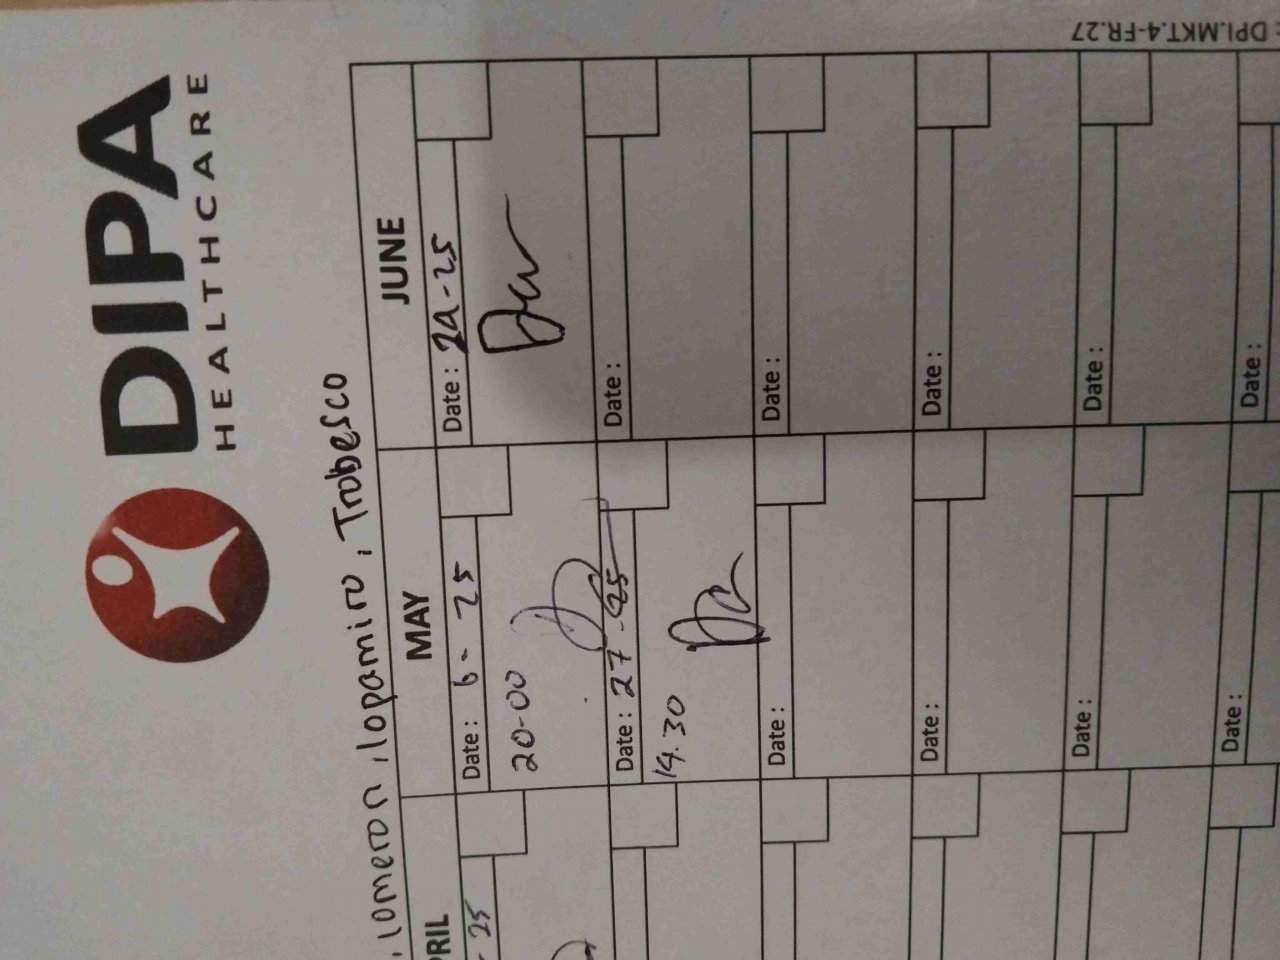 DPI.MKT.4-FR.27
DIPA
HEALTHCARE
, lomeron, lopamiro, Trobesco
PRIL MAY JUNE
25 Date : 6 - 25 Date : 2a-25
20-00
Date : 27-25 Date :
14.30
Date : Date :
Date : Date :
Date : Date :
Date : Date :